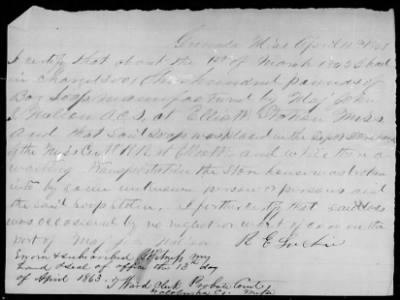 Grenada Miss April 11th 1863
I certify that about the 1st of March 1863 I had
in charge 500 (five hundred pounds of
Bar Soap manufactured by Maj John
J Mullen A.C.S. at Elliott Station Miss
And that said soap was placed in the Depot Store house
of the Miss Cent R.R. at Elliott, and while there a
waiting Transportation the Store house was broken
into by some unknown person or persons and
the said soap stolen. I further certify that said loss
was occasioned by no neglect or want of care on the
part of Maj
R E
Sworn & subscribed before me my
hand & seal of office the 13th day
of April 1863
Ward Clerk Probate Court
Yalobusha Co. Miss